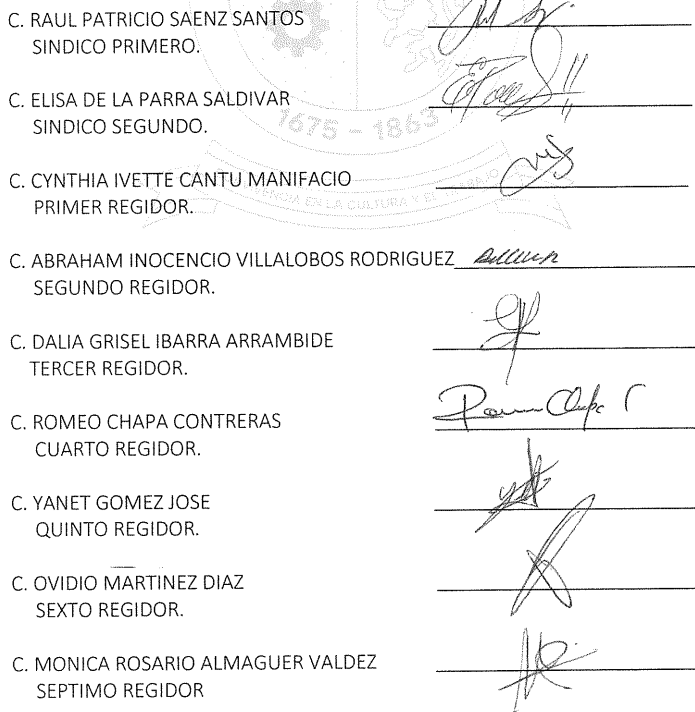 C. RAUL PATRICIO SAENZ SANTOS
SINDICO PRIMERO.
C. ELISA DE LA PARRA SALDIVAR
SINDICO SEGUNDO.
1675 - 1863
C. CYNTHIA IVETTE CANTU MANIFACIO
PRIMER REGIDOR.
EN LA CULTURA Y EL TRABAJO
C. ABRAHAM INOCENCIO VILLALOBOS RODRIGUEZ
SEGUNDO REGIDOR.
C. DALIA GRISEL IBARRA ARRAMBIDE
TERCER REGIDOR.
C. ROMEO CHAPA CONTRERAS
CUARTO REGIDOR.
C. YANET GOMEZ JOSE
QUINTO REGIDOR.
C. OVIDIO MARTINEZ DIAZ
SEXTO REGIDOR.
C. MONICA ROSARIO ALMAGUER VALDEZ
SEPTIMO REGIDOR